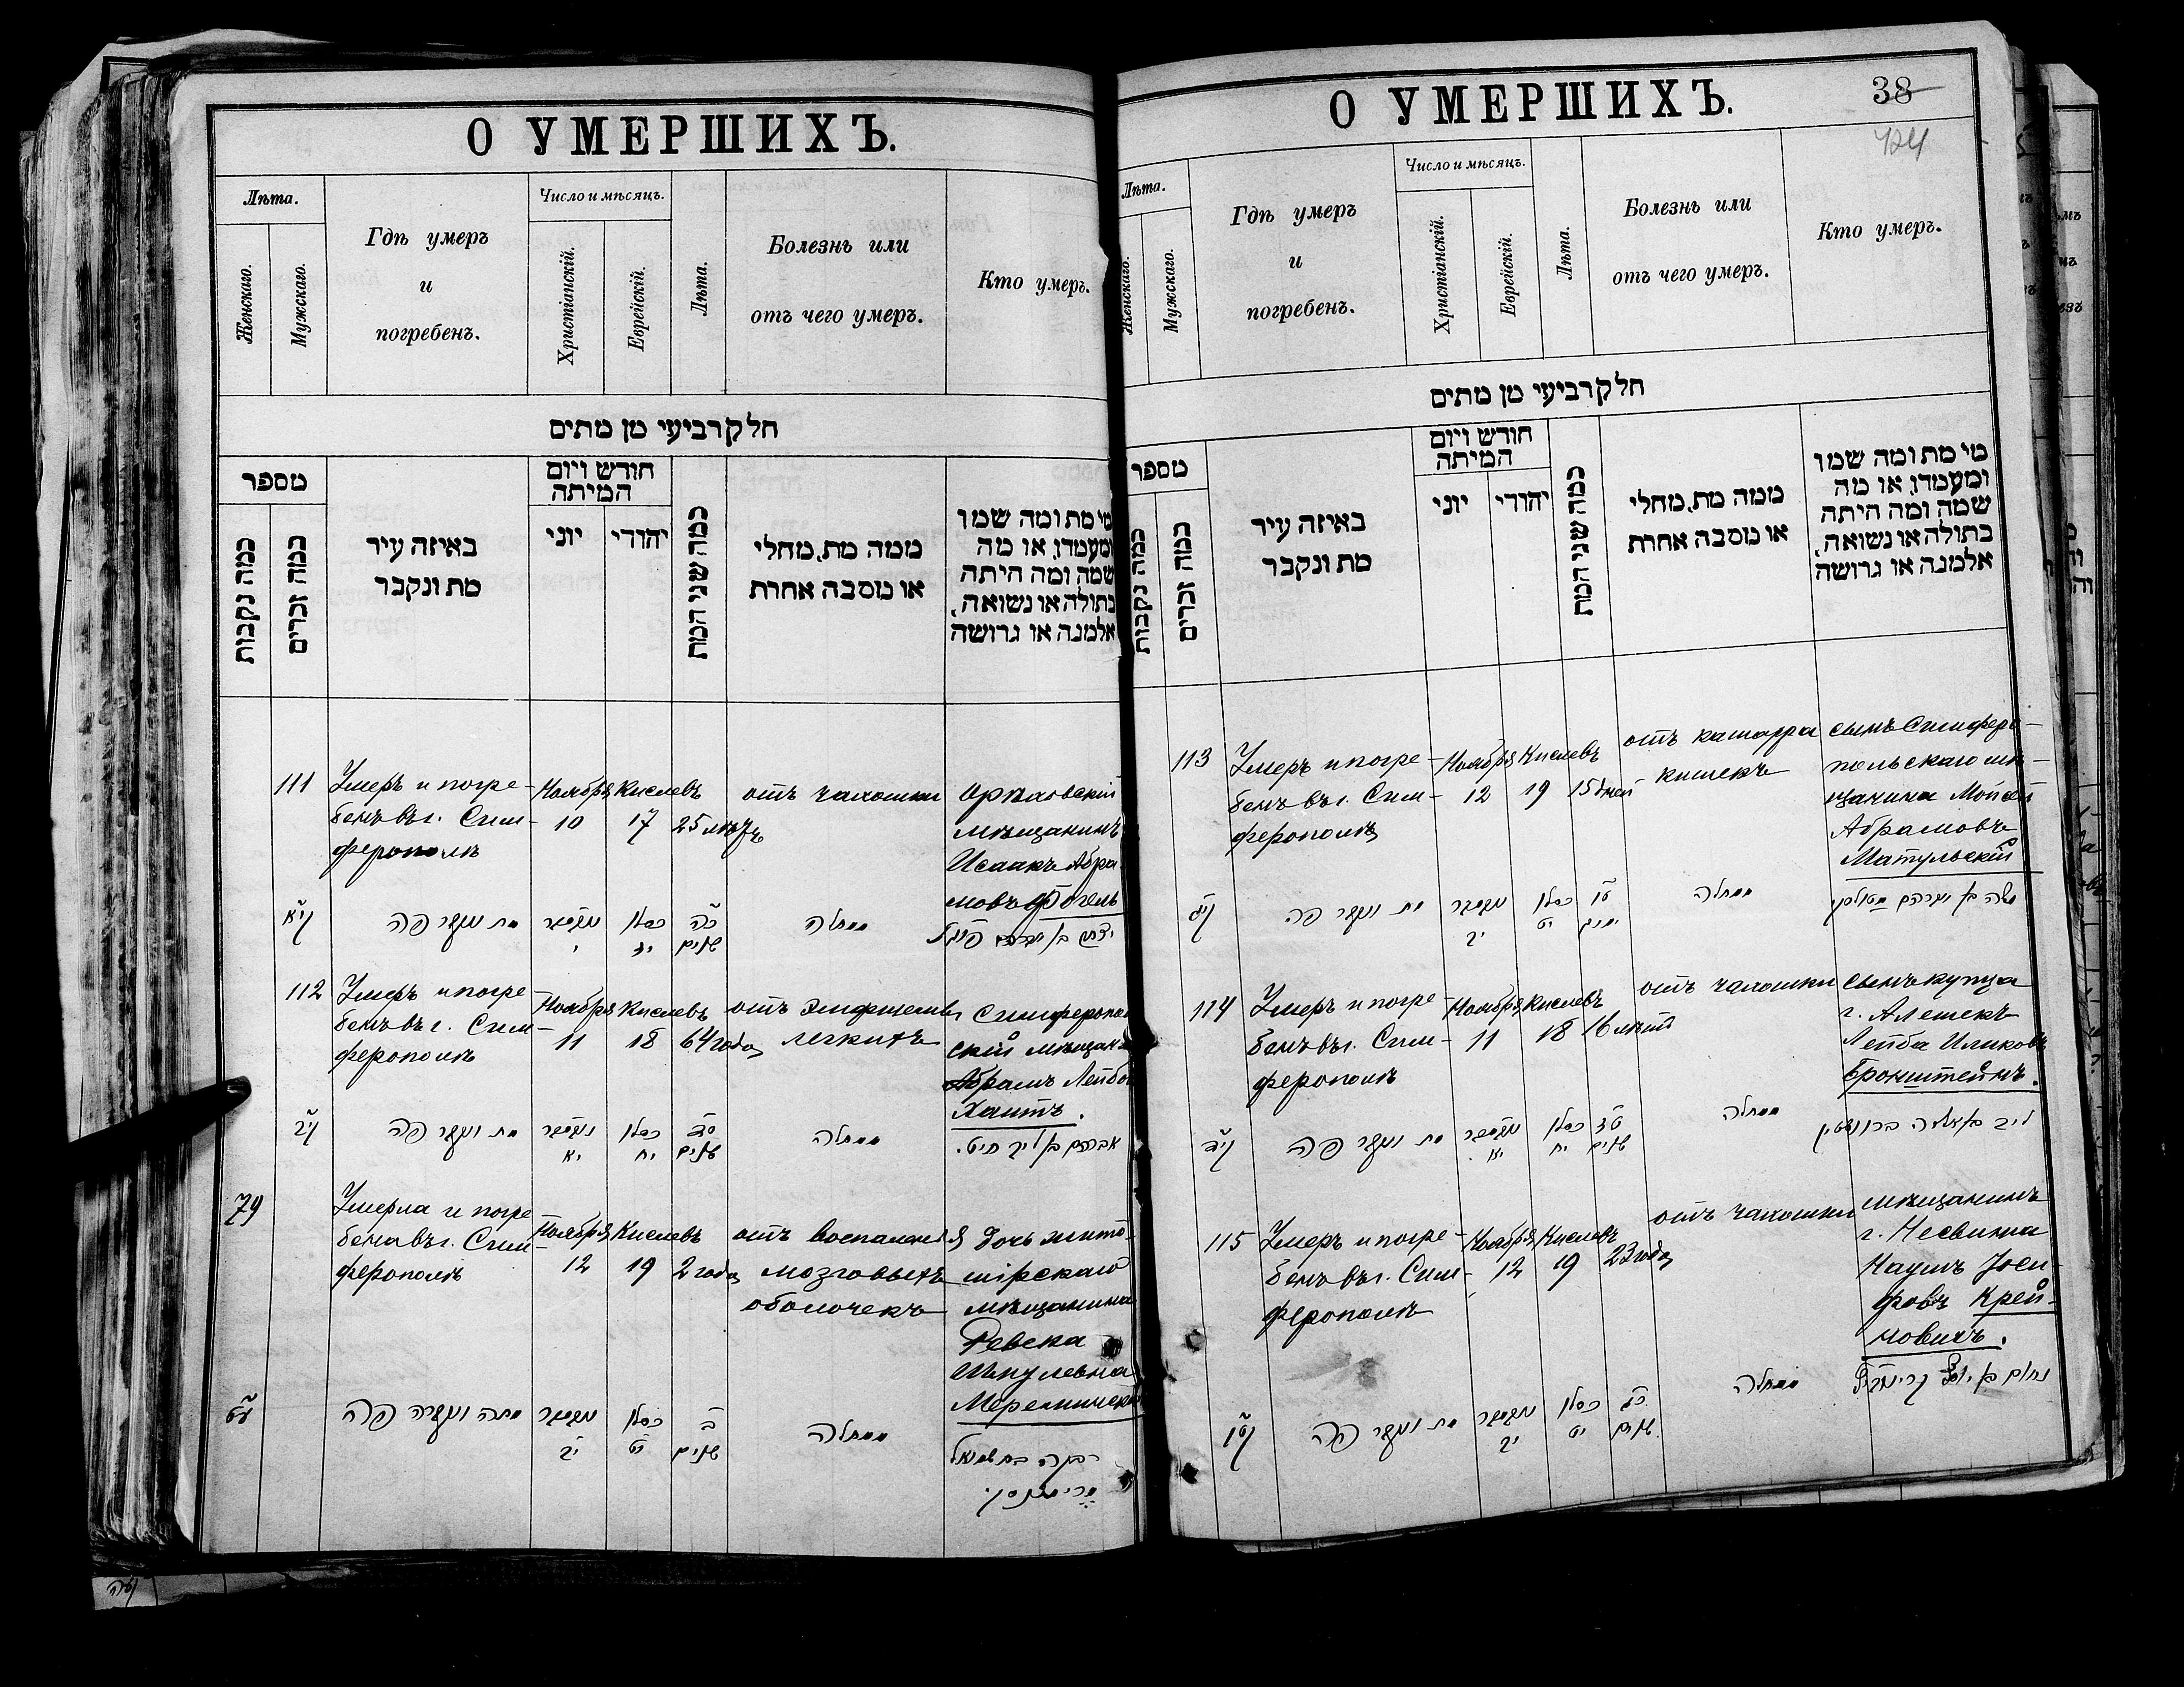 О УМЕРШИХЪ.
Лѣта.
Женскаго.
Мужскаго.
Гдѣ умеръ
и
погребенъ.
Число и мѣсяцъ.
Христіанскій.
Еврейскій.
Лѣта.
Болезнь или
отъ чего умеръ.
Кто умеръ.
חלק רביעי מן מתים
מספר
כמה נקבות
כמה זכרים
באיזה עיר
מת ונקבר
חודש ויום
המיתה
יוני
יהודי
כמה שני המת
ממה מת, מחלי
או מסבה אחרת
מי מת ומה שמו
ומעמדו, או מה
שמה ומה היתה
בתולה או נשואה,
אלמנה או גרושה
111
Умеръ и погре-
бенъ въ г. Сим-
ферополѣ
Ноября
10
Кислевъ
17
25 лѣтъ
отъ чахотки
мѣщанинъ
Исаакъ Абра
мовъ Фогель
קי״א
מת ונקבר פה
נאװעמבר
י
כסלו
יז
כה
שנים
ממחלה
יצחק בן אברהם פויגל
112
Умеръ и погре
бенъ въ г. Сим-
ферополѣ
Ноября
11
Кислевъ
18
64 года
отъ
легкихъ
Симферопол
скій мѣщан
Абрамъ Лейбов
Хаитъ.
קי״ב
מת ונקבר פה
נאװעמבר
יא
כסלו
יח
סד
שנים
ממחלה
אברהם בן ליב חיט.
79
Умерла и погре
бена въ г. Сим-
ферополѣ
Ноября
12
Кислевъ
19
2 года
отъ воспаленія
мозговыхъ
оболочекъ
дочь жито
мірскаго
мѣщанина
Ревека
Шмулевна
ע״ט
מתה ונקברה פה
נאװעמבר
יב
כסלו
יט
ב
שנים
ממחלה
רבקה בת שמואל
О УМЕРШИХЪ.
38
424
Лѣта.
Женскаго.
Мужскаго.
Гдѣ умеръ
и
погребенъ.
Число и мѣсяцъ.
Христіанскій.
Еврейскій.
Лѣта.
Болезнь или
отъ чего умеръ.
Кто умеръ.
חלק רביעי מן מתים
מספר
כמה נקבות
כמה זכרים
באיזה עיר
מת ונקבר
חודש ויום
המיתה
יוני
יהודי
כמה שני המת
ממה מת, מחלי
או מסבה אחרת
מי מת ומה שמו
ומעמדו, או מה
שמה ומה היתה
בתולה או נשואה,
אלמנה או גרושה
113
Умеръ и погре-
бенъ въ г. Сим-
ферополѣ
Ноября
12
Кислевъ
19
15 дней
отъ катарра
кишекъ
сынъ Симферо-
польскаго мѣ-
щанина Мойсей
Абрамовъ
Матульскій
קי״ג
מת ונקבר פה
נאװעמבר
יב
כסלו
יט
טו
ימים
ממחלה
משה בן אברהם מטולסקי
114
Умеръ и погре-
бенъ въ г. Сим-
ферополѣ
Ноября
11
Кислевъ
18
16 лѣтъ
отъ чахотки
сынъ купца
г. Алешекъ
Лейба Иликовъ
Бронштейнъ.
קי״ד
מת ונקבר פה
נאװעמבר
יא
כסלו
יח
טז
שנים
ממחלה
ליב בן אליה ברונשטין
115
Умеръ и погре-
бенъ въ г. Сим-
ферополѣ
Ноября
12
Кислевъ
19
23 года
отъ чахотки
мѣщанинъ
г. Несвижа
Наумъ Іоси-
фовъ Крей-
новичъ.
קט״ו
מת ונקבר פה
נאװעמבר
יב
כסלו
יט
כג
שנים
ממחלה
נחום בן יוסף קריינאװיץ